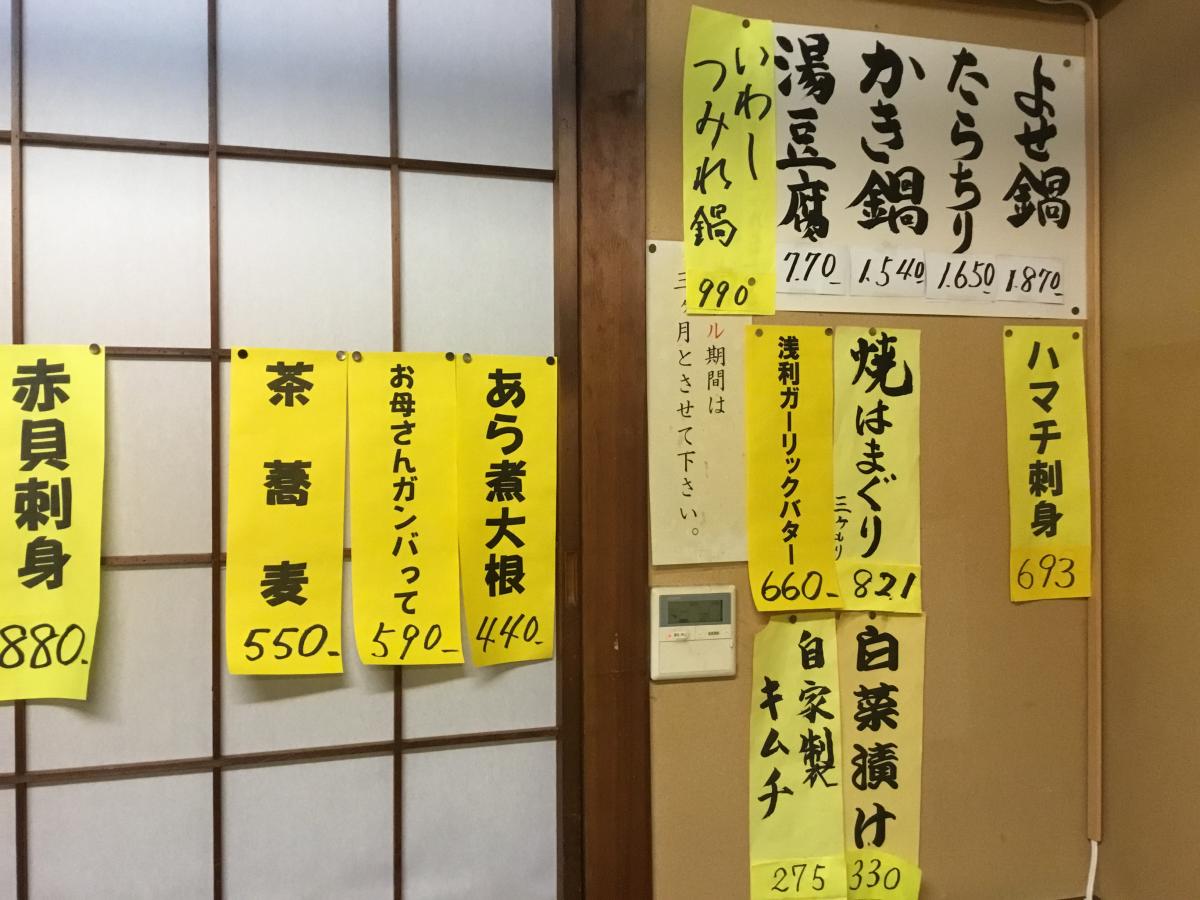 よせ鍋
1.870-
たらちり
1.650-
かき鍋
1.540-
湯豆腐
770-
いわし
つみれ鍋
990
ル期間は
月とさせて下さい。
ハマチ刺身
693
焼はまぐり
821
浅利ガーリックバター
660-
白菜漬け
330
自家製
キムチ
275
あら煮大根
440-
お母さんガンバって
590-
茶蕎麦
550-
赤貝刺身
880-